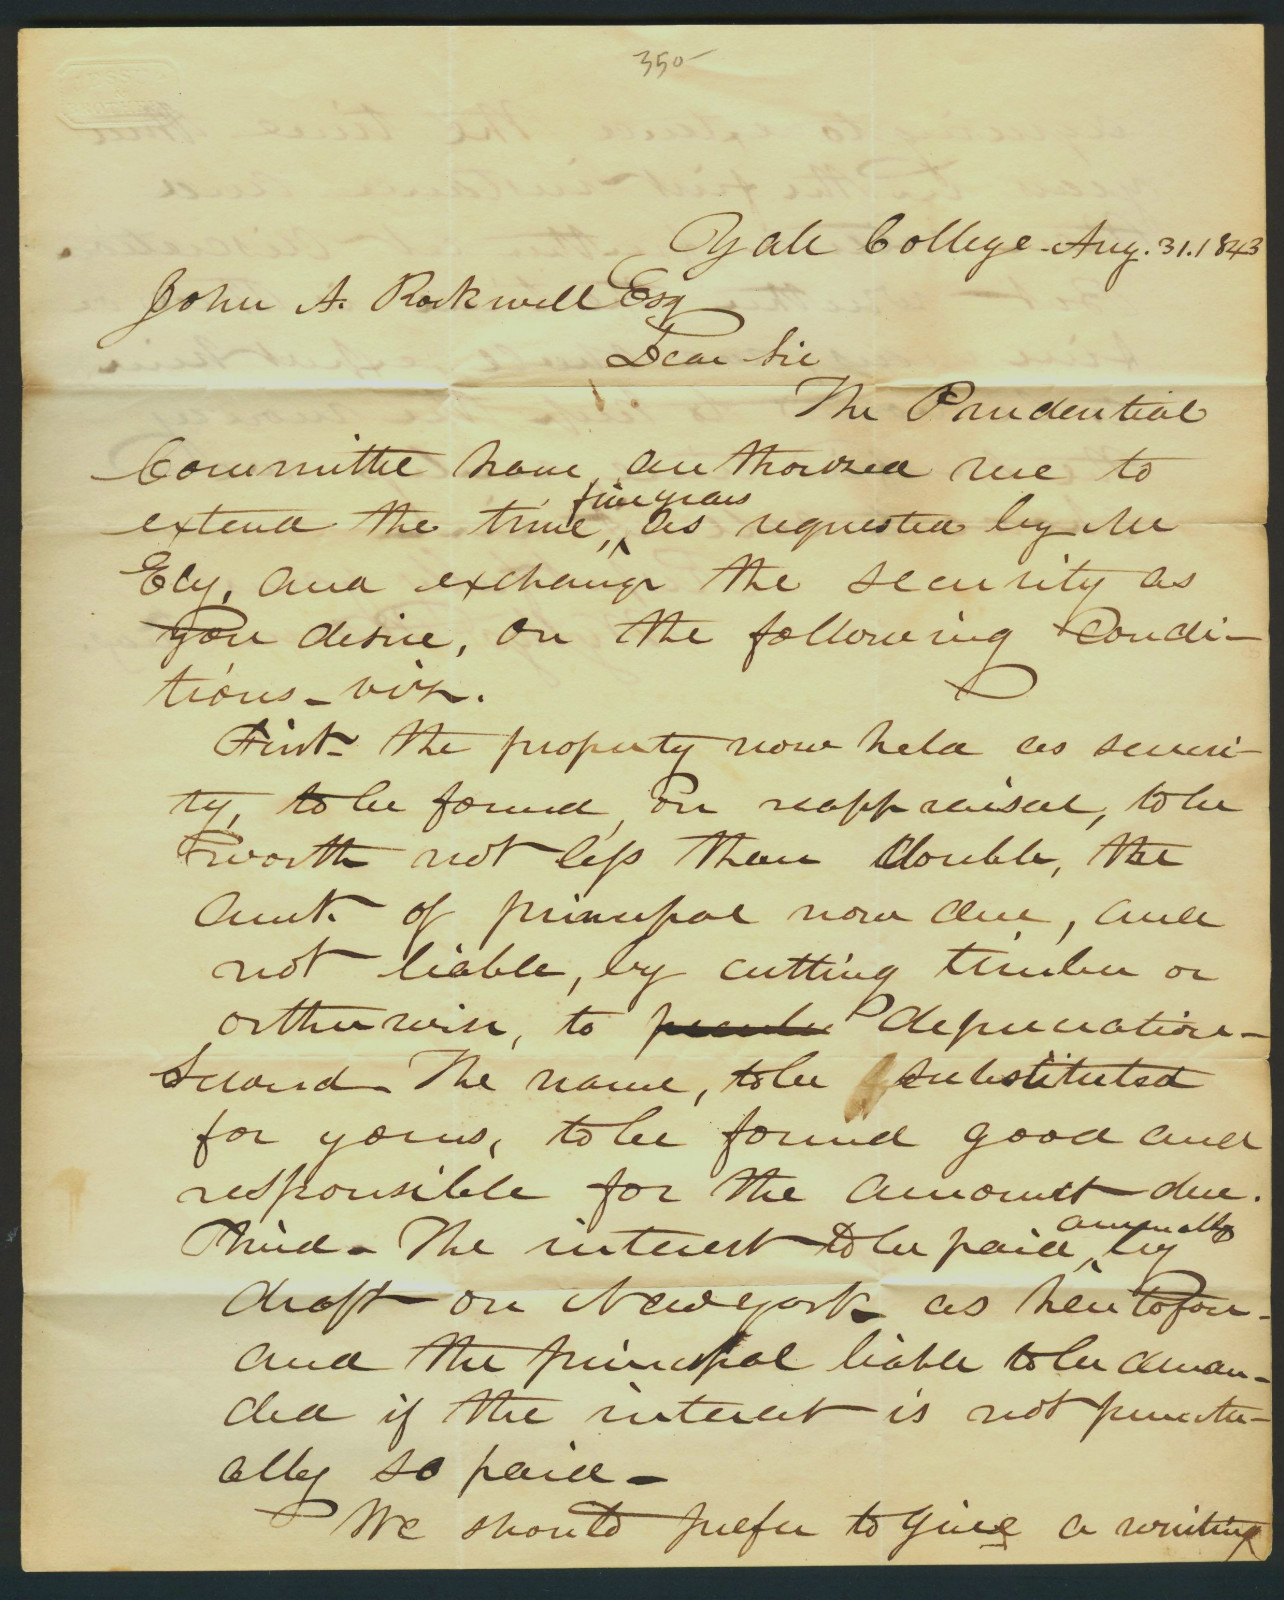 350
Yale College - Aug. 31. 1843
John A. Rockwell Esq
Dear Sir
The Prudential
Committee have authorized me to
five years
extend the time, ^ as requested by Mr
Ely, and exchange the security as
you desire, on the following condi-
tions - viz.
First - the property now held as securi-
ty, to be found, on reappraisal, to be
worth not less than double, the
amt. of principal now due, and
not liable, by cutting timber or
otherwise, to depreciation -
Second - The name, to be substituted
for yours, to be found good and
responsible for the amount due.
annually
Third - The interest to be paid ^ by
draft on New York - as heretofore -
and the principal liable to be deman-
ded if the interest is not punctu-
ally so paid -
We should prefer to give a writing